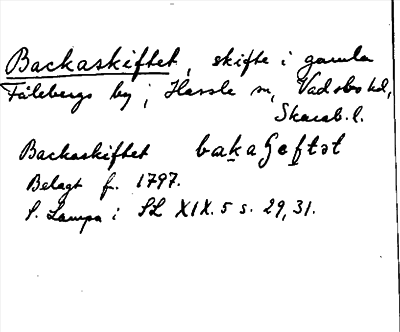 Backaskiftet, skifte i gamla
Fälebergs by i Hassle sn, Vadsbo hd,
Skarab. l.
Backaskiftet bakaʃeftət
Belagt fr. 1797.
S. Lampa i SL XIX. 5 s. 29, 31.